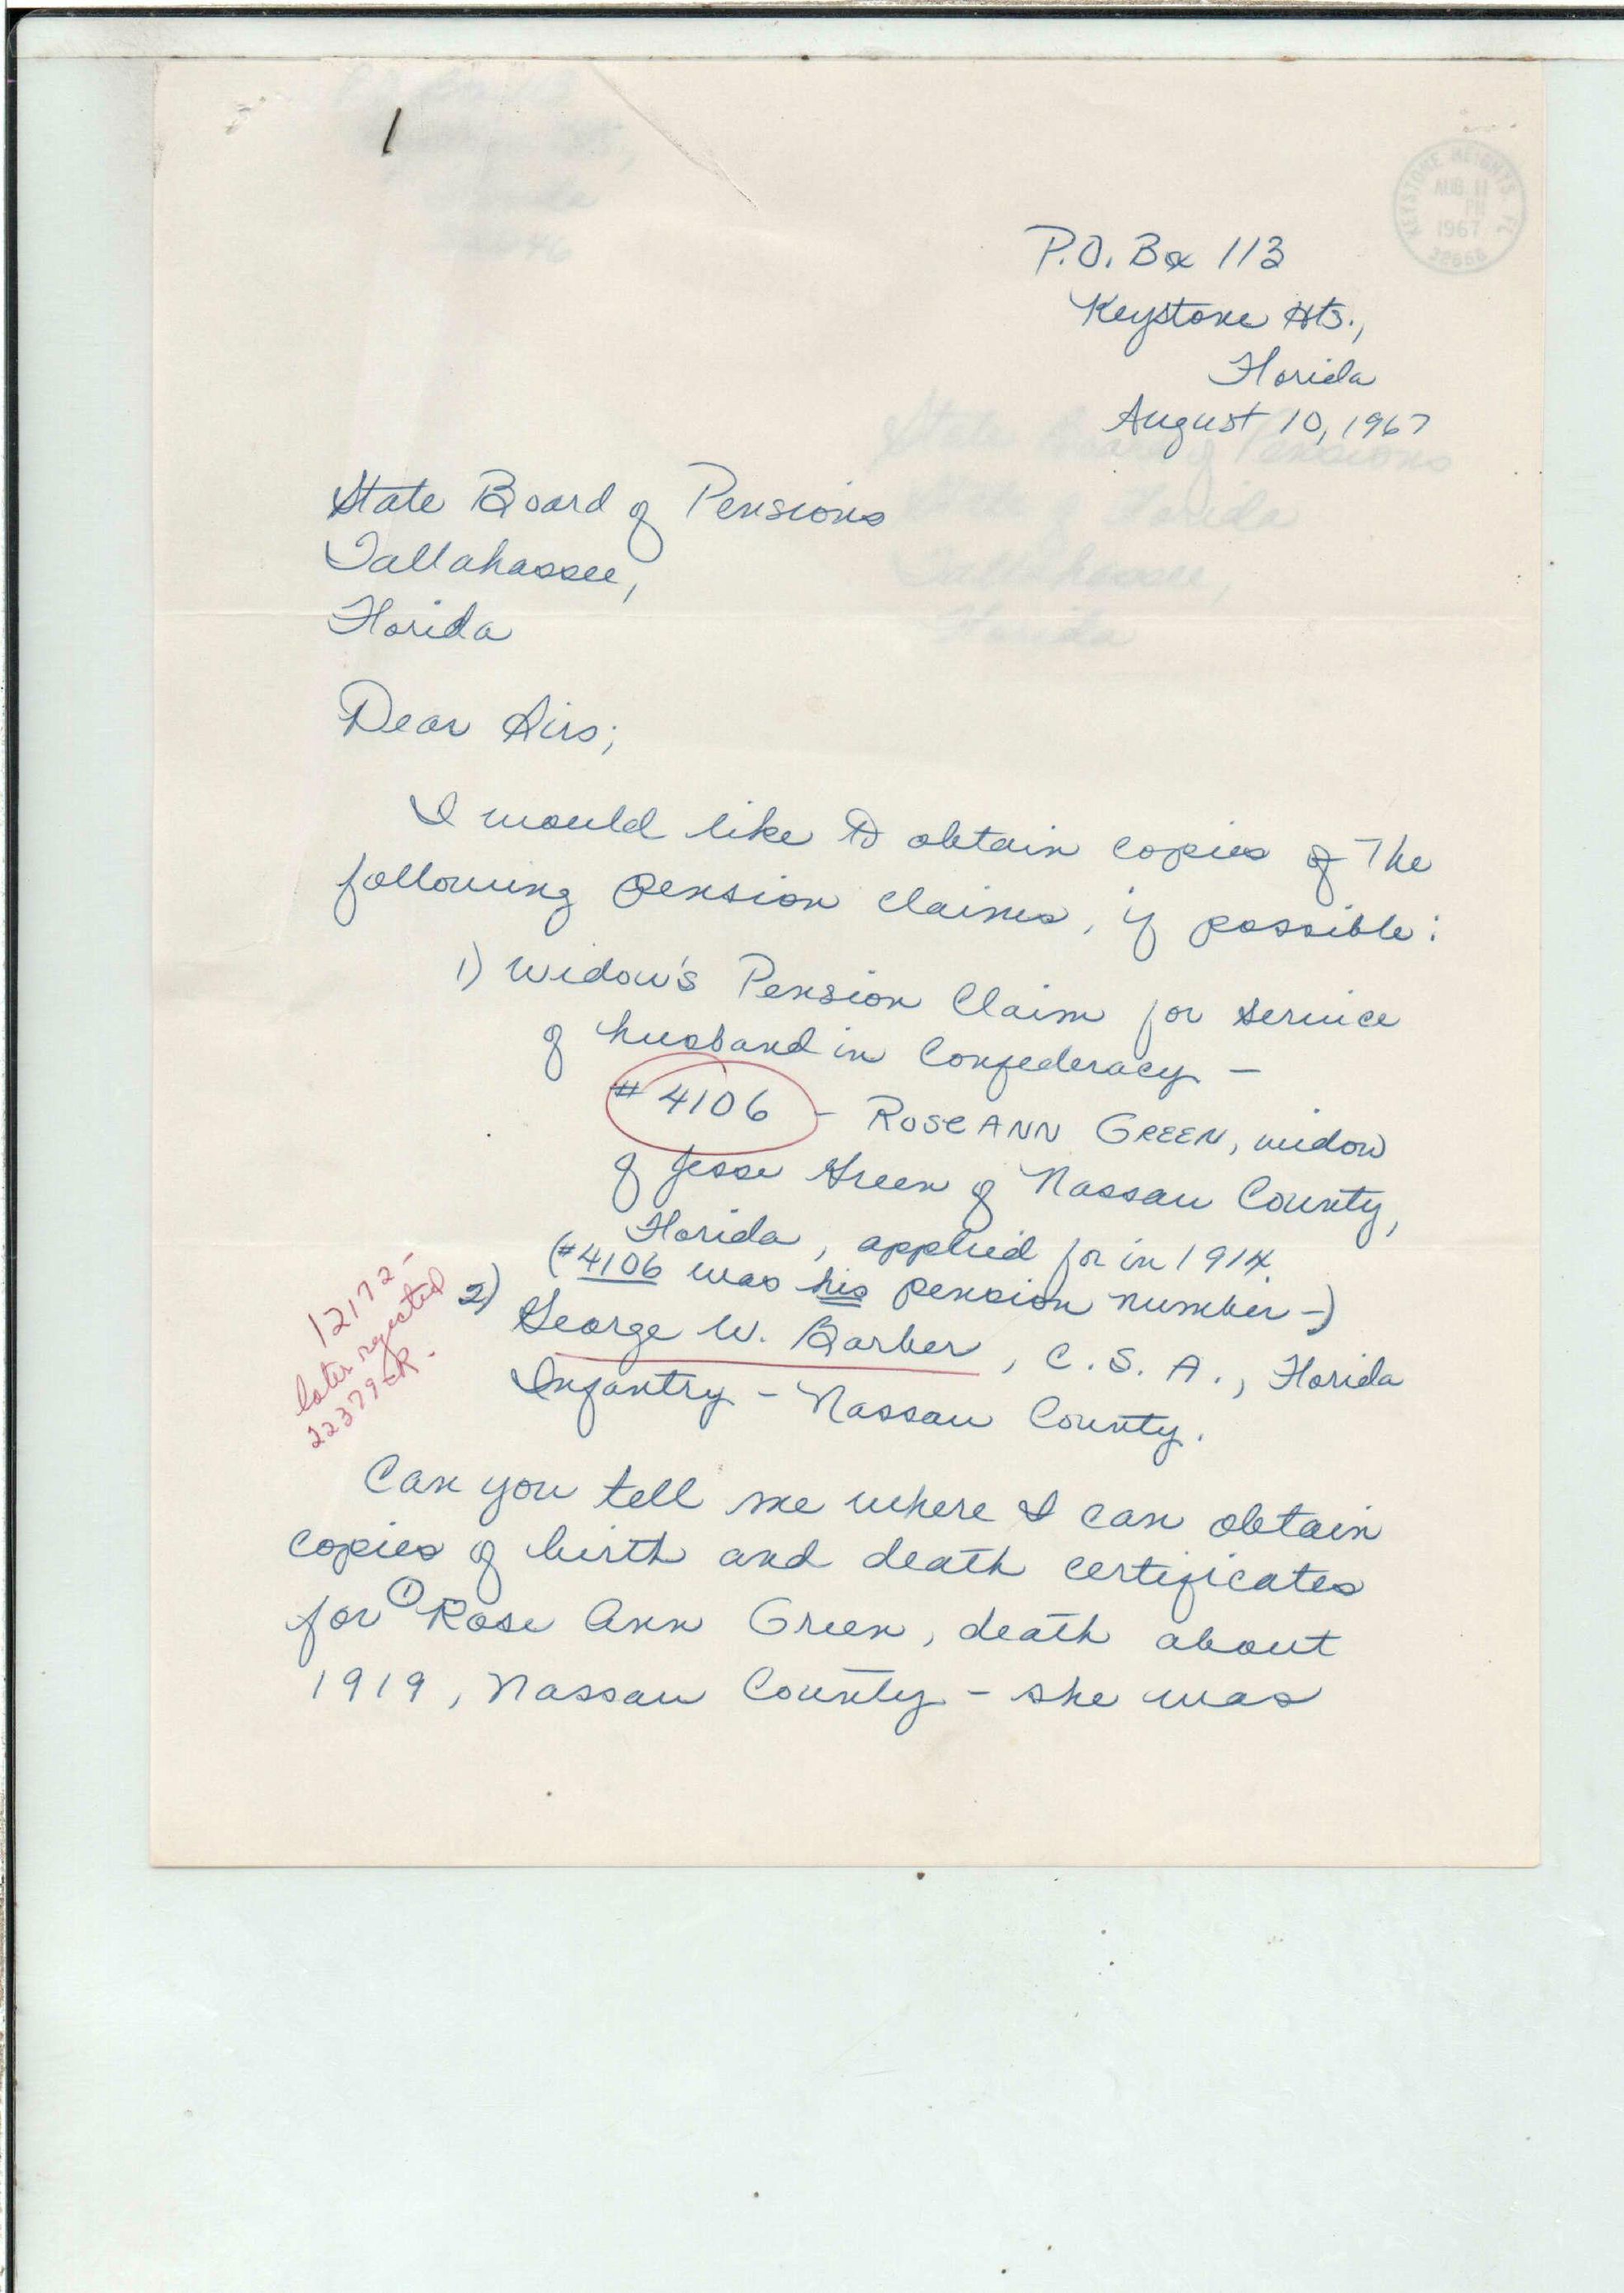 1
KEYSTONE HEIGHTS, FL
AUG 11
PM
1967
P.O. Box 113
Keystone Hts.,
Florida
August 10, 1967
State Board of Pensions
Tallahassee,
Florida
State Board of Pensions
Florida
Tallahassee,
Florida
Dear Sirs;
I would like to obtain copies of the
following pension claims, if possible:
1) Widow's Pension Claim for service
of husband in Confederacy -
#4106 - ROSE ANN GREEN, widow
of Jesse Green of Nassau County,
Florida, applied for in 1914.
(#4106 was his pension number-)
12172-
later rejected
22379-R.
2) George W. Barber, C.S.A., Florida
Infantry - Nassau County.
Can you tell me where I can obtain
copies of birth and death certificates
for ① Rose Ann Green, death about
1919, Nassau County - she was